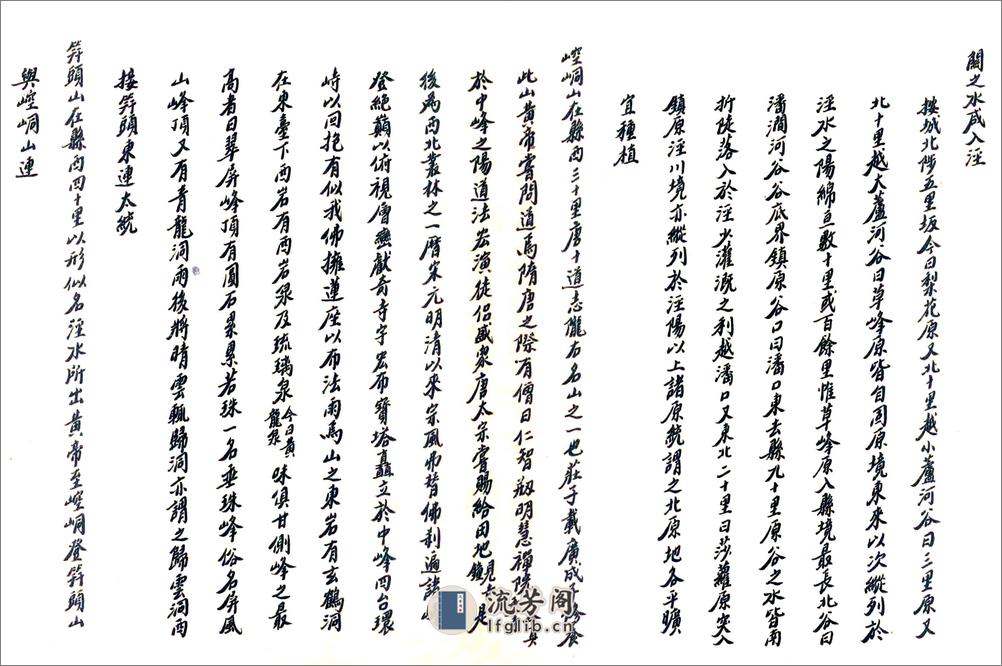 關之水咸入涇
按城北陟五里坂今曰梨花原又北十里越小蘆河谷曰三里原又
北十里越大蘆河谷曰草峰原皆自固原境東來以次縱列於
涇水之陽綿亘數十里或百餘里惟草峰原入縣境最長北谷曰
潘澗河谷谷底界鎮原谷口曰潘口東去縣九十里原谷之水皆南
折陡落入於涇少灌溉之利越潘口又東北二十里曰莎蘿原突入
鎮原涇川境亦縱列於涇陽以上諸原統謂之北原地各平曠
宜種植
崆峒山在縣西三十里唐十道志隴右名山之一也莊子載廣成
此山黃帝嘗問道焉隋唐之際有僧曰仁智剏明慧禪院
於中峰之陽道法宏演徒侶盛衆唐太宗嘗賜給田地是
後為西北叢林之一歷宋元明清以來宗風弗替佛刹遍諸
登絕巔以俯視層巒獻奇寺宇宏布寶塔矗立於中峰四台環
峙以回抱有似我佛擁蓮座以布法雨焉山之東岩有玄鶴洞
在東臺下西岩有西岩泉及琉璃泉今曰黃龍泉味俱甘側峰之最
高者曰翠屏峰頂有圓石累累若珠一名垂珠峰俗名屏風
山峰頂又有青龍洞雨後將晴雲飄歸洞亦謂之歸雲洞西
接笄頭東連太統
笄頭山在縣西四十里以形似名涇水所出黃帝至崆峒登笄頭山
與崆峒山連
流芳阁
lfglib.cn